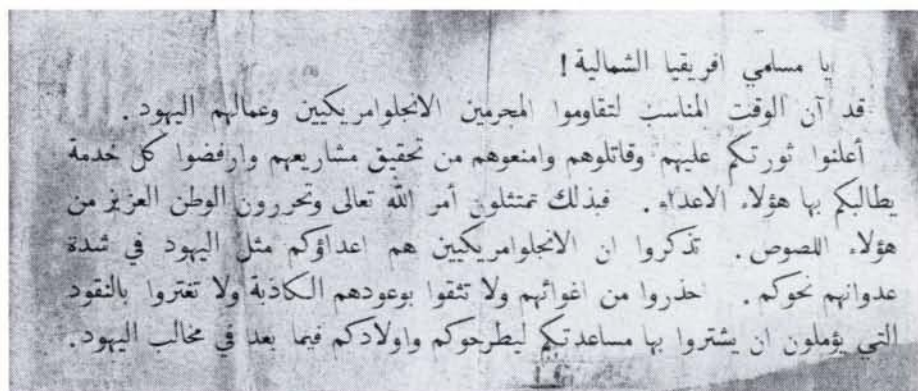 يا مسلمي افريقيا الشمالية !
قد آن الوقت المناسب لتقاوموا المجرمين الانجلوامريكيين وعمالهم اليهود .
أعلنوا ثورتكم عليهم وقاتلوهم وامنعوهم من تحقيق مشاريعهم وارفضوا كل خدمة
يطالبكم بها هؤلاء الاعداء . فبذلك تمتثلون أمر الله تعالى وتحررون الوطن العزيز من
هؤلاء اللصوص . تذكروا ان الانجلوامريكيين هم اعداؤكم مثل اليهود في شدة
عدوانهم نحوكم . احذروا من اغوائهم ولا تثقوا بوعودهم الكاذبة ولا تغتروا بالنقود
التي يؤملون ان يشتروا بها مساعدتكم ليطرحوكم واولادكم فيما بعد في مخالب اليهود .